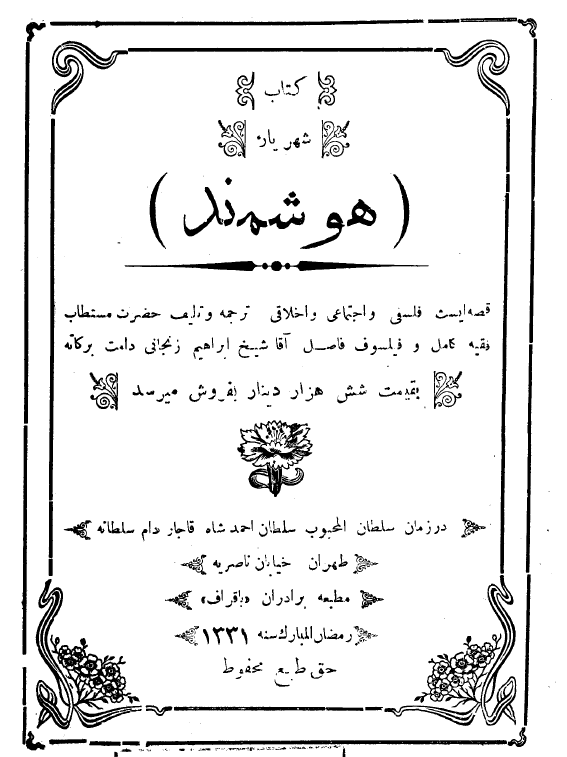 كتاب
شهریار
( هوشمند )
قصه‌ایست فلسفی واجتماعی واخلاقی ترجمه وتالیف حضرت مستطاب
فقیه كامل و فیلسوف فاضل آقا شیخ ابراهیم زنجانی دامت بركاته
بقیمت شش هزار دینار بفروش میرسد
درزمان سلطان المحبوب سلطان احمد شاه قاجار دام سلطانه
طهران خیابان ناصریه
مطبعه برادران «باقراف»
رمضان المبارك سنه ۱۳۳۱
حق طبع محفوظ